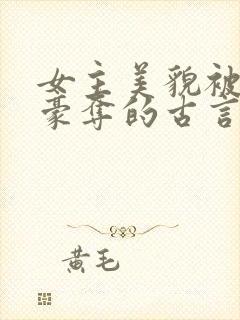 女主美貌被
豪夺的古言
黄毛